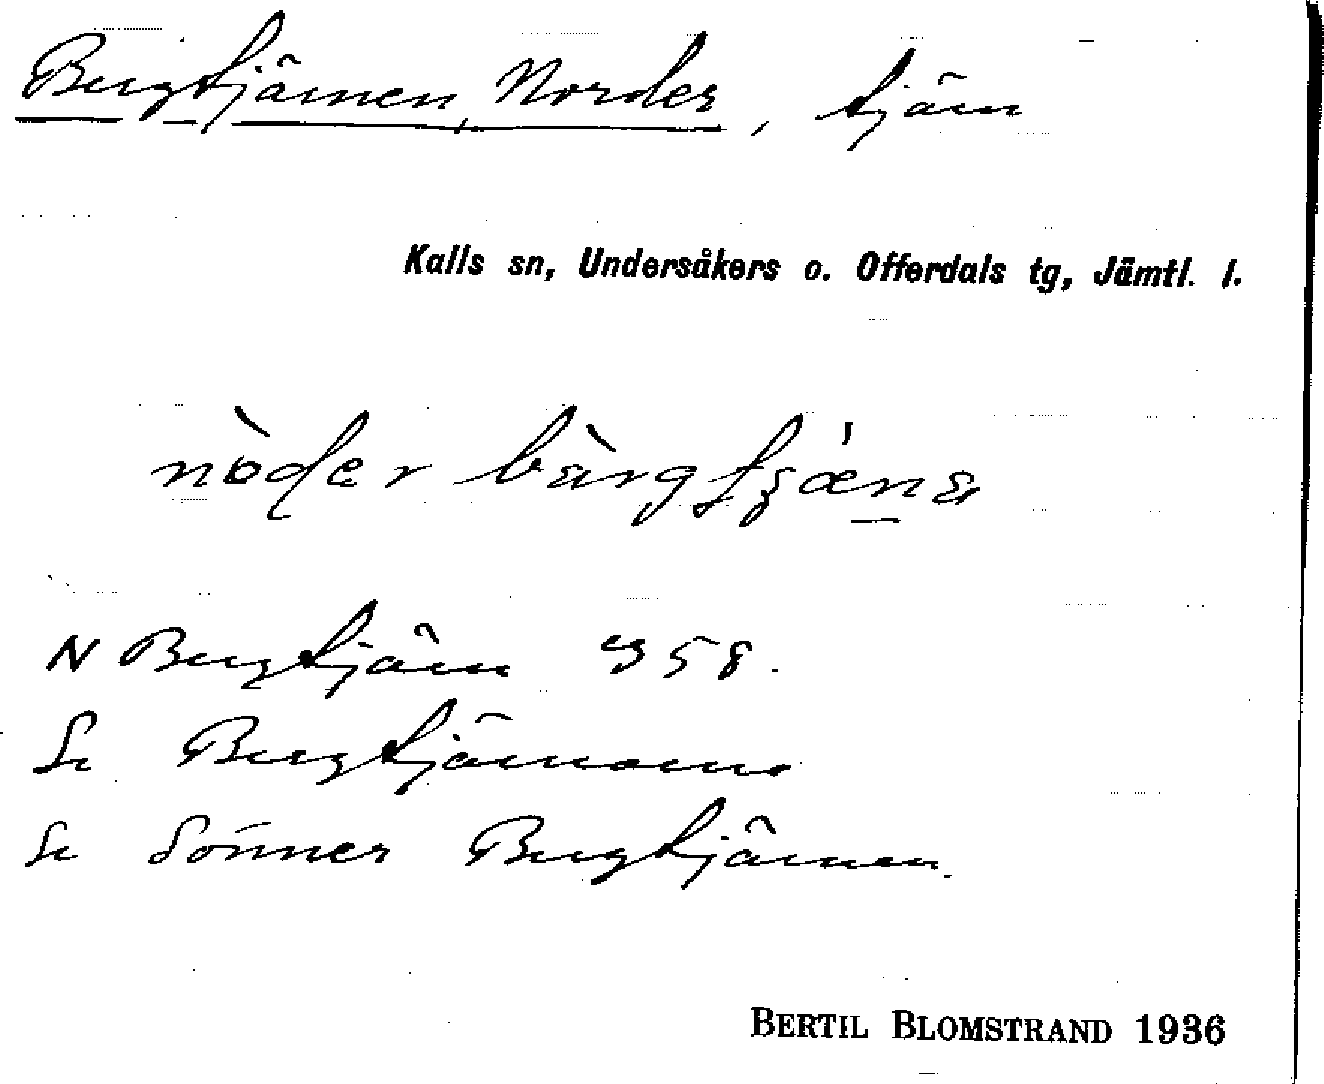 Bergtjärnen, Norder, tjärn
Kalls sn, Undersåkers o. Offerdals tg, Jämtl. l.
N Bergtjärn 58.
Se Bergtjärnarna
Se Sönner Bergtjärnen.
BERTIL BLOMSTRAND 1936